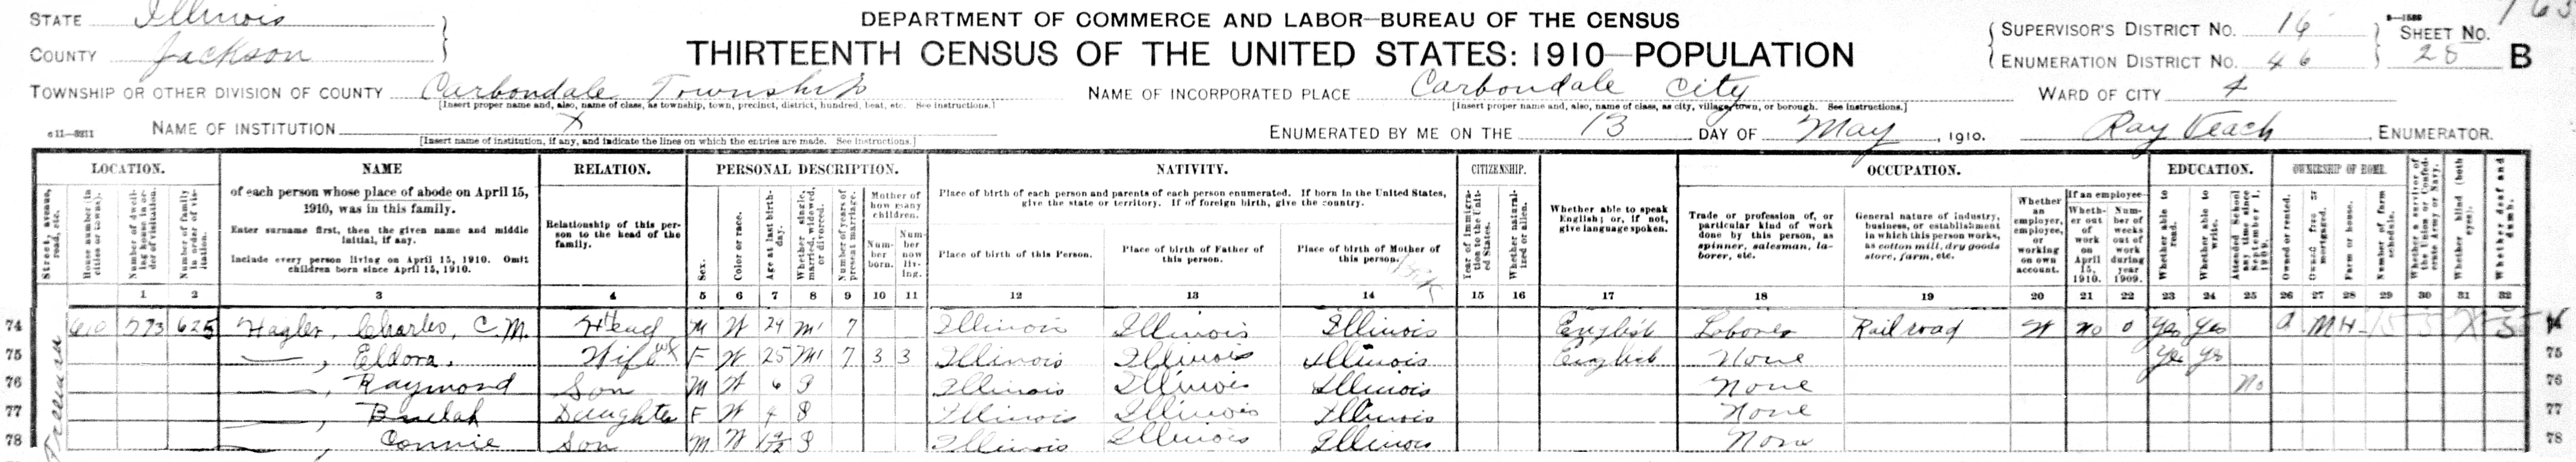 STATE Illinois
COUNTY Jackson
DEPARTMENT OF COMMERCE AND LABOR—BUREAU OF THE CENSUS
THIRTEENTH CENSUS OF THE UNITED STATES: 1910—POPULATION
SUPERVISOR'S DISTRICT No. 16
ENUMERATION DISTRICT No. 46
SHEET No.
28 B
TOWNSHIP OR OTHER DIVISION OF COUNTY Carbondale Township
[Insert proper name and, also, name of class, as township, town, precinct, district, hundred, beat, etc. See instructions.]
NAME OF INCORPORATED PLACE Carbondale City
[Insert proper name and, also, name of class, as city, village, town, or borough. See instructions.]
WARD OF CITY 4
NAME OF INSTITUTION X
[Insert name of institution, if any, and indicate the lines on which the entries are made. See instructions.]
ENUMERATED BY ME ON THE 13 DAY OF May, 1910. Ray Veach ENUMERATOR.
LOCATION.
Street, avenue, road, etc.
House number (in cities or towns).
Number of dwelling house in order of visitation.
Number of family in order of visitation.
NAME
of each person whose place of abode on April 15, 1910, was in this family.
Enter surname first, then the given name and middle initial, if any.
Include every person living on April 15, 1910. Omit children born since April 15, 1910.
RELATION.
Relationship of this person to the head of the family.
PERSONAL DESCRIPTION.
Sex.
Color or race.
Age at last birthday.
Whether single, married, widowed, or divorced.
Number of years of present marriage.
Mother of how many children.
Number born.
Number now living.
NATIVITY.
Place of birth of each person and parents of each person enumerated. If born in the United States, give the state or territory. If of foreign birth, give the country.
Place of birth of this Person.
Place of birth of Father of this person.
Place of birth of Mother of this person.
CITIZENSHIP.
Year of immigration to the United States.
Whether naturalized or alien.
Whether able to speak English; or, if not, give language spoken.
OCCUPATION.
Trade or profession of, or particular kind of work done by this person, as spinner, salesman, laborer, etc.
General nature of industry, business, or establishment in which this person works, as cotton mill, dry goods store, farm, etc.
Whether an employer, employee, or working on own account.
If an employee—
Whether out of work on April 15, 1910.
Number of weeks out of work during year 1909.
EDUCATION.
Whether able to read.
Whether able to write.
Attended School any time since September 1, 1909.
OWNERSHIP OF HOME.
Owned or rented.
Owned free or mortgaged.
Farm or house.
Number of farm schedule.
Whether a survivor of the Union or Confederate Army or Navy.
Whether blind (both eyes).
Whether deaf and dumb.
1 2 3 4 5 6 7 8 9 10 11 12 13 14 15 16 17 18 19 20 21 22 23 24 25 26 27 28 29 30 31 32
74 610 573 625 Hagler, Charles, C. M. Head M W 24 M1 7 Illinois Illinois Illinois English Laborer Railroad W No 0 Yes Yes O M H
75 —, Eldora. Wife F W 25 M1 7 3 3 Illinois Illinois Illinois English None Yes Yes 75
76 —, Raymond Son M W 6 S Illinois Illinois Illinois None No 76
77 —, Beulah Daughter F W 4 S Illinois Illinois Illinois None 77
78 Connie Son M W S Illinois Illinois Illinois None 78